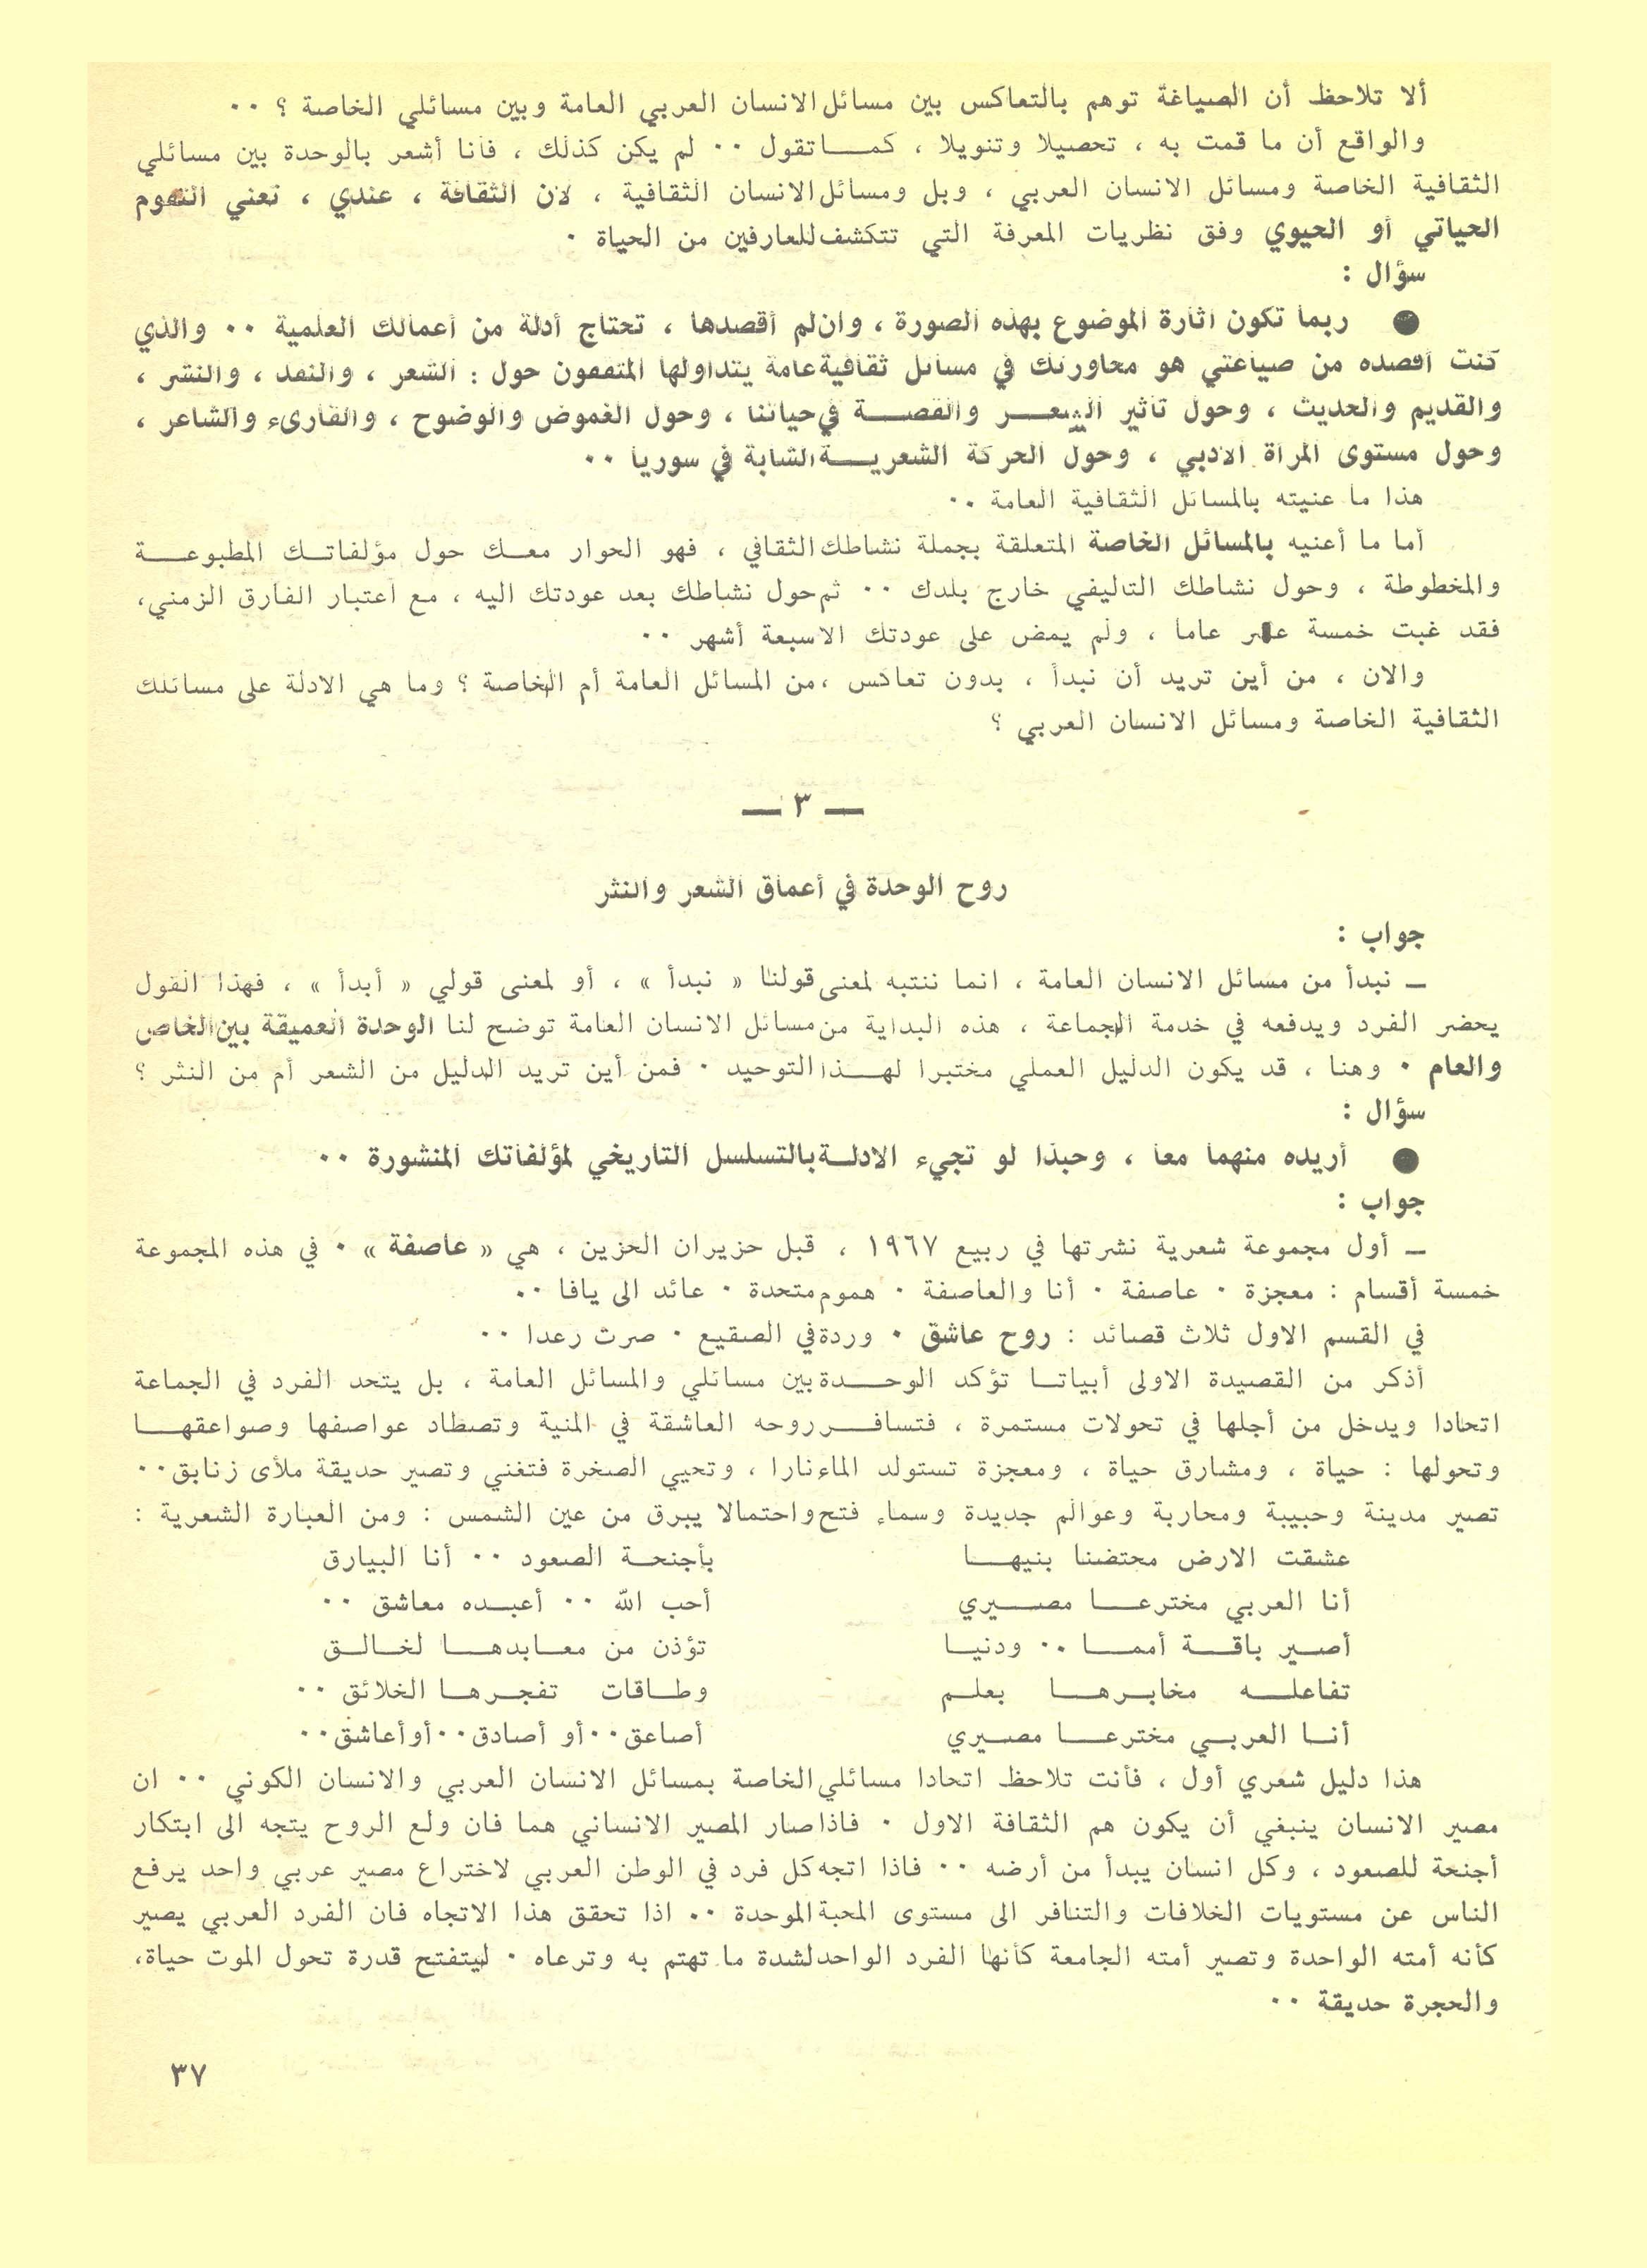 ألا تلاحظ أن الصياغة توهم بالتعاكس بين مسائل الانسان العربي العامة وبين مسائلي الخاصة ؟ ٠٠
والواقع أن ما قمت به ، تحصيلا وتنويلا ، كمـــا تقول ٠٠ لم يكن كذلك ، فأنا أشعر بالوحدة بين مسائلي
الثقافية الخاصة ومسائل الانسان العربي ، وبل ومسائل الانسان الثقافية ، لان الثقافة ، عندي ، تعني
الحياتي أو الحيوي وفق نظريات المعرفة التي تتكشف للعارفين من الحياة ٠
سؤال :
● ربما تكون اثارة الموضوع بهذه الصورة ، وان لم أقصدها ، تحتاج أدلة من أعمالك العلمية ٠٠ والذي
كنت أقصده من صياغتي هو محاورتك في مسائل ثقافية عامة يتداولها المثقفون حول : الشعر ، والنقد ، والنشر ،
والقديم والحديث ، وحول تأثير الشعـــر والقصـــة في حياتنا ، وحول الغموض والوضوح ، والقارىء والشاعر ،
وحول مستوى المرأة الادبي ، وحول الحركة الشعريـــة الشابة في سوريا ٠٠
هذا ما عنيته بالمسائل الثقافية العامة ٠٠
أما ما أعنيه بالمسائل الخاصة المتعلقة بجملة نشاطك الثقافي ، فهو الحوار معــك حول مؤلفاتــك المطبوعـــة
والمخطوطة ، وحول نشاطك التاليفي خارج بلدك ٠٠ ثم حول نشاطك بعد عودتك اليه ، مع اعتبار الفارق الزمني،
فقد غبت خمسة عشر عاما ، ولم يمض على عودتك الا سبعة أشهر ٠٠
والان ، من أين تريد أن نبدأ ، بدون تعاكس ، من المسائل العامة أم الخاصة ؟ وما هي الادلة على مسائلك
الثقافية الخاصة ومسائل الانسان العربي ؟
— ٣ —
روح الوحدة في أعماق الشعر والنثر
جواب :
ــ نبدأ من مسائل الانسان العامة ، انما ننتبه لمعنى قولنا « نبدأ » ، أو لمعنى قولي « أبدأ » ، فهذا القول
يحضر الفرد ويدفعه في خدمة الجماعة ، هذه البداية من مسائل الانسان العامة توضح لنا الوحدة العميقة بين الخاص
والعام ٠ وهنا ، قد يكون الدليل العملي مختبرا لهــذا التوحيد ٠ فمن أين تريد الدليل من الشعر أم من النثر ؟
سؤال :
● أريده منهما معا ، وحبذا لو تجيء الادلــة بالتسلسل التاريخي لمؤلفاتك المنشورة ٠٠
جواب :
ــ أول مجموعة شعرية نشرتها في ربيع ١٩٦٧ ، قبل حزيران الحزين ، هي « عاصفة » ٠ في هذه المجموعة
خمسة أقسام : معجزة ٠ عاصفة ٠ أنا والعاصفة ٠ هموم متحدة ٠ عائد الى يافا ٠٠
في القسم الاول ثلاث قصائد : روح عاشق ٠ وردة في الصقيع ٠ صرت رعدا ٠٠
أذكر من القصيدة الاولى أبياتــا تؤكد الوحـــدة بين مسائلي والمسائل العامة ، بل يتحد الفرد في الجماعة
اتحادا ويدخل من أجلها في تحولات مستمرة ، فتسافــر روحه العاشقة في المنية وتصطاد عواصفها وصواعقهـــا
وتحولها : حياة ، ومشارق حياة ، ومعجزة تستولد الماء نارا ، وتحيي الصخرة فتغني وتصير حديقة ملأى زنابق ٠٠
تصير مدينة وحبيبة ومحاربة وعوالم جديدة وسماء فتح واحتمالا يبرق من عين الشمس : ومن العبارة الشعرية :
عشقت الارض محتضنا بنيهـــا بأجنحــة الصعود ٠٠ أنا البيارق
أنا العربي مخترعـــا مصـــيري أحب الله ٠٠ أعبــده معاشق ٠٠
أصــير باقــة أممــا ٠٠ ودنيــا تؤذن من معــابدهــا لخــالــق
تفاعلــه مخابــرهــا بعلــم وطــاقات تفجــرهــا الخلائق ٠٠
أنــا العربــي مخترعـــا مصــيري أصاعق ٠٠ أو أصادق ٠٠ أو أعاشق ٠٠
هذا دليل شعري أول ، فأنت تلاحظ اتحادا مسائلي الخاصة بمسائل الانسان العربي والانسان الكوني ٠٠ ان
مصير الانسان ينبغي أن يكون هم الثقافة الاول ٠ فاذا صار المصير الانساني هما فان ولع الروح يتجه الى ابتكار
أجنحة للصعود ، وكل انسان يبدأ من أرضه ٠٠ فاذا اتجه كل فرد في الوطن العربي لاختراع مصير عربي واحد يرفع
الناس عن مستويات الخلافات والتنافر الى مستوى المحبة الموحدة ٠٠ اذا تحقق هذا الاتجاه فان الفرد العربي يصير
كأنه أمته الواحدة وتصير أمته الجامعة كأنها الفرد الواحد لشدة ما تهتم به وترعاه ٠ ليتفتح قدرة تحول الموت حياة،
والحجرة حديقة ٠٠
٣٧